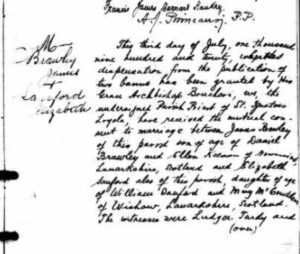 Francis James Bernard
P.P.
M
Brawley
James
+
Sanford
Elizabeth
This third day of July, one thousand
nine hundred and twenty,
dispensation from the publication of
two banns has been granted by His
Grace Archbishop we the
undersigned Parish Priest of St. Ignatius
Loyola, have received the mutual con-
sent to marriage between James Brawley
of this parish son of age of Daniel
Brawley and Ellen Keenan of
Lanarkshire, Scotland and Elizabeth
Sanford also of this parish daughter of age
of William Sanford and Mary
of Wishaw, Lanarkshire, Scotland.
The witnesses were Ludger Tardy and
(over)